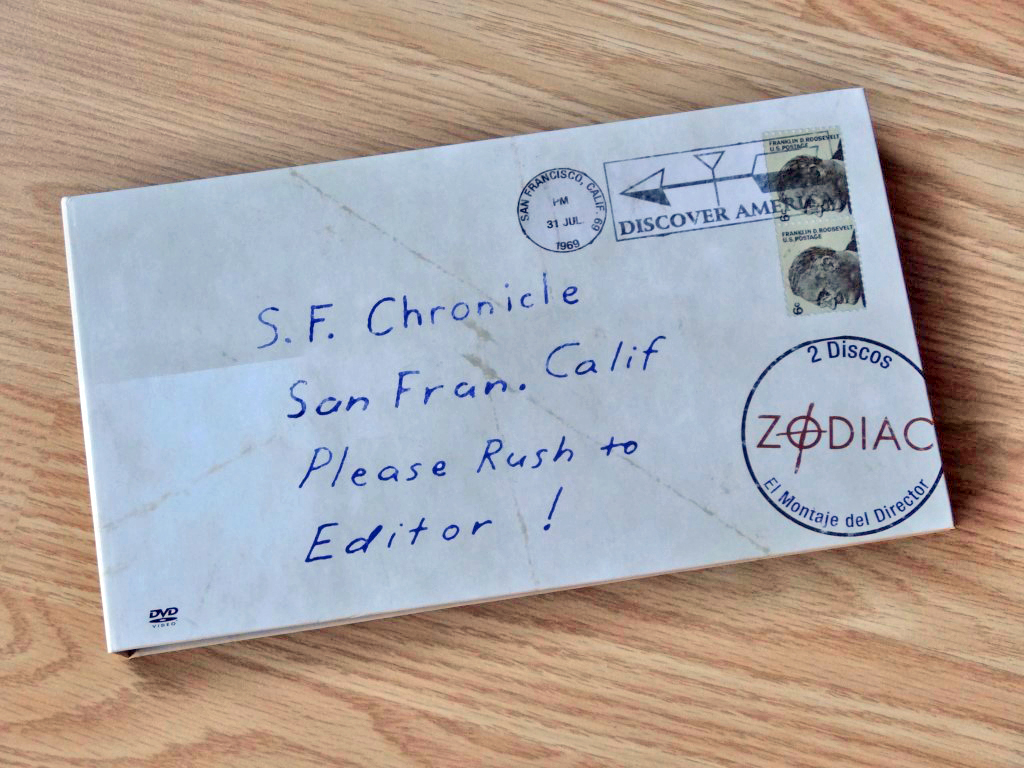 SAN FRANCISCO, CALIF. 69
PM
31 JUL
1969
DISCOVER AMERICA
FRANKLIN D. ROOSEVELT
U.S. POSTAGE
6c
FRANKLIN D. ROOSEVELT
U.S. POSTAGE
6c
S.F. Chronicle
San Fran. Calif
Please Rush to
Editor !
2 Discos
ZODIAC
El Montaje del Director
DVD
VIDEO